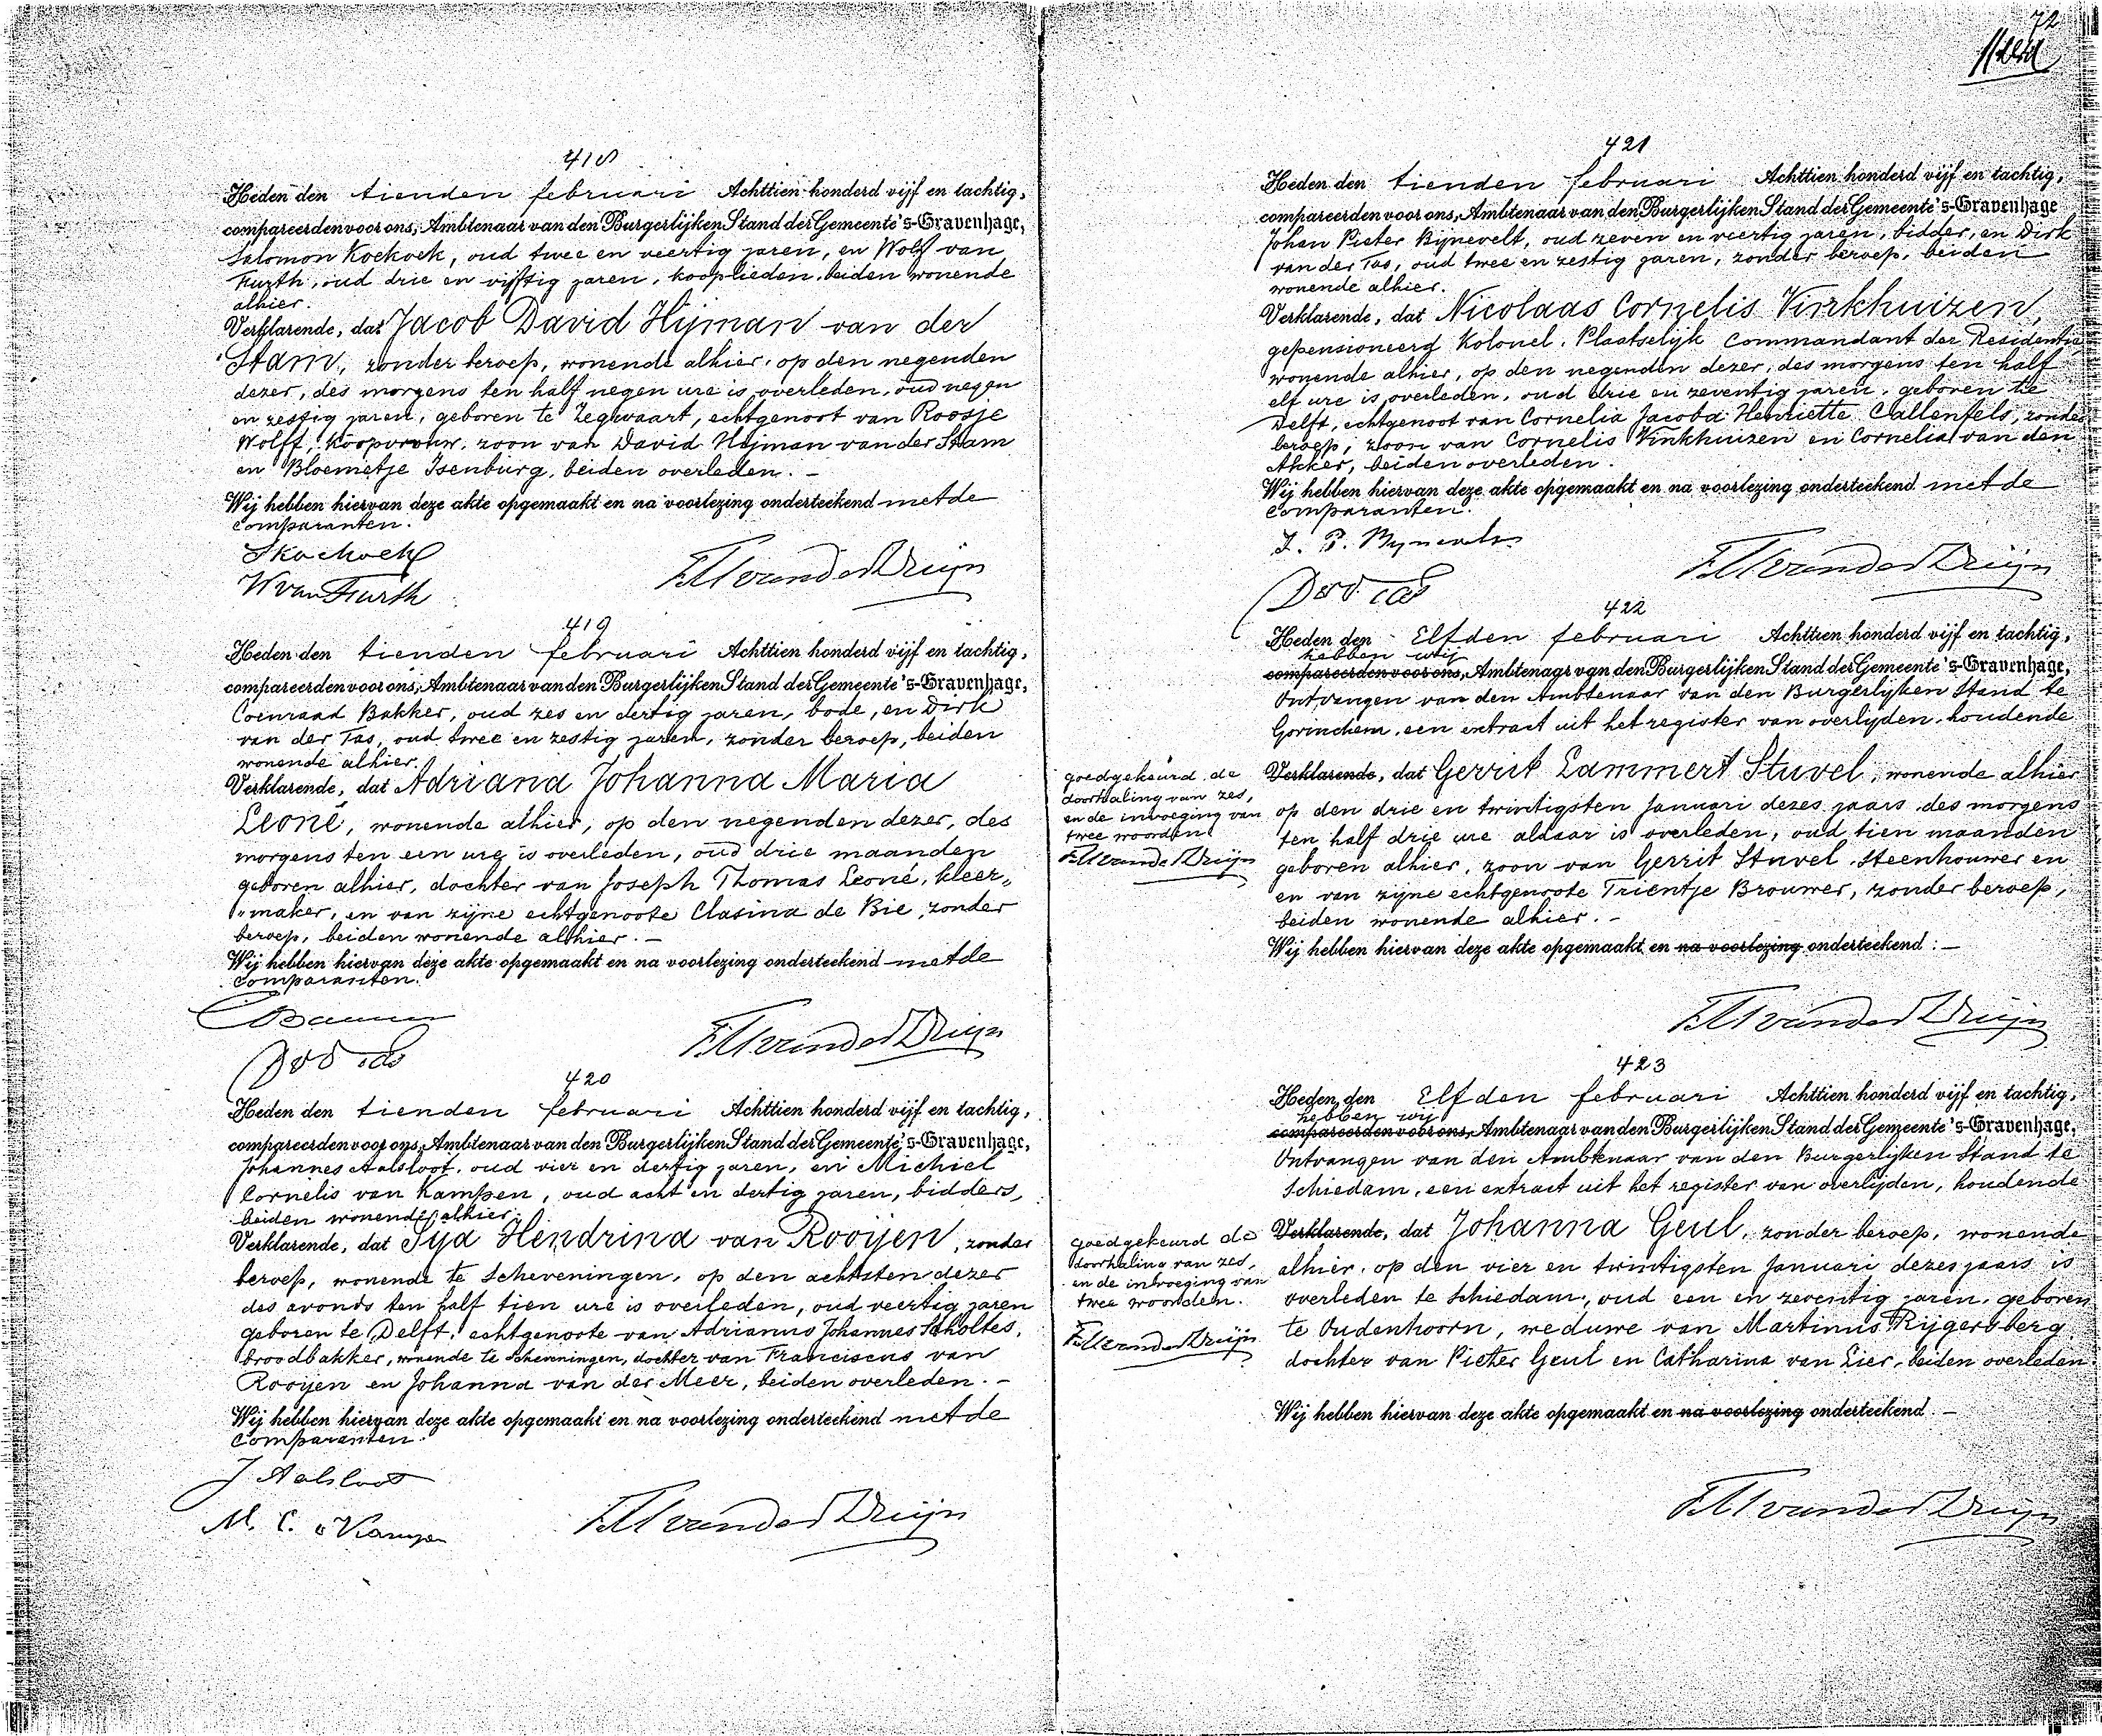 418
Heden den tienden februari Achttien honderd vijf en tachtig,
compareerden voor ons, Ambtenaar van den Burgerlijken Stand der Gemeente 's-Gravenhage,
Salomon Koekoek, oud twee en veertig jaren, en Wolf van
Furth, oud drie en vijftig jaren, kooplieden, beiden wonende
alhier.
Verklarende, dat Jacob David Hijman van der
Stam, zonder beroep, wonende alhier, op den negenden
dezer, des morgens ten half negen ure is overleden, oud negen
en zestig jaren, geboren te Zegwaart, echtgenoot van Roosje
Wolff, koopvrouw, zoon van David Hijman van der Stam
en Bloemetje Isenburg, beiden overleden. –
Wij hebben hiervan deze akte opgemaakt en na voorlezing onderteekend met de
comparanten.
S Koekoek
W van Furth
419
Heden den tienden februari Achttien honderd vijf en tachtig,
compareerden voor ons, Ambtenaar van den Burgerlijken Stand der Gemeente 's-Gravenhage,
Coenraad Bakker, oud zes en dertig jaren, bode, en Dirk
van der Tas, oud twee en zestig jaren, zonder beroep, beiden
wonende alhier.
Verklarende, dat Adriana Johanna Maria
Leoné, wonende alhier, op den negenden dezer, des
morgens ten een ure is overleden, oud drie maanden
geboren alhier, dochter van Joseph Thomas Leoné, kleer„
„maker, en van zijne echtgenoote Clasina de Bie, zonder
beroep, beiden wonende alhier. –
Wij hebben hiervan deze akte opgemaakt en na voorlezing onderteekend met de
comparanten.
420
Heden den tienden februari Achttien honderd vijf en tachtig,
compareerden voor ons, Ambtenaar van den Burgerlijken Stand der Gemeente 's-Gravenhage,
Johannes Aalsloot, oud vier en dertig jaren, en Michiel
Cornelis van Kampen, oud acht en dertig jaren, bidders,
beiden wonende alhier.
Verklarende, dat Sija Hendrina van Rooijen, zonder
beroep, wonende te Scheveningen, op den achtsten dezer
des avonds ten half tien ure is overleden, oud veertig jaren
geboren te Delft, echtgenoote van Adrianus Johannes Scholtes,
broodbakker, wonende te Scheveningen, dochter van Franciscus van
Rooijen en Johanna van der Meer, beiden overleden. –
Wij hebben hiervan deze akte opgemaakt en na voorlezing onderteekend met de
comparanten.
J Aalsloot
M. C. v Kampen
72
421
Heden den tienden februari Achttien honderd vijf en tachtig,
compareerden voor ons, Ambtenaar van den Burgerlijken Stand der Gemeente 's-Gravenhage
Johan Pieter Bijnevelt, oud zeven en veertig jaren, bidder, en Dirk
van der Tas, oud twee en zestig jaren, zonder beroep, beiden
wonende alhier.
Verklarende, dat Nicolaas Cornelis Vinkhuizen,
gepensioneerd Kolonel, Plaatselijk Commandant der Residentie
wonende alhier, op den negenden dezer, des morgens ten half
elf ure is overleden, oud drie en zeventig jaren, geboren te
Delft, echtgenoot van Cornelia Jacoba Henriette Callenfels, zonder
beroep, zoon van Cornelis Vinkhuizen en Cornelia van den
Akker, beiden overleden.
Wij hebben hiervan deze akte opgemaakt en na voorlezing onderteekend met de
comparanten.
422
Heden den Elfden februari Achttien honderd vijf en tachtig,
hebben wij
compareerden voor ons, Ambtenaar van den Burgerlijken Stand der Gemeente 's-Gravenhage,
Ontvangen van den Ambtenaar van den Burgerlijken Stand te
Gorinchem, een extract uit het register van overlijden, houdende
Verklarende, dat Gerrit Lammert Stuvel, wonende alhier
op den drie en twintigsten Januari dezes jaars, des morgens
ten half drie ure aldaar is overleden, oud tien maanden
geboren alhier, zoon van Gerrit Stuvel, Steenhouwer en
en van zijne echtgenoote Trientje Brouwer, zonder beroep,
beiden wonende alhier. –
Wij hebben hiervan deze akte opgemaakt en na voorlezing onderteekend. –
goedgekeurd de
doorhaling van zes,
en de invoeging van
twee woorden.
423
Heden den Elfden februari Achttien honderd vijf en tachtig,
hebben wij
compareerden voor ons, Ambtenaar van den Burgerlijken Stand der Gemeente 's-Gravenhage,
Ontvangen van den Ambtenaar van den Burgerlijken Stand te
Schiedam, een extract uit het register van overlijden, houdende
Verklarende, dat Johanna Geul, zonder beroep, wonende
alhier, op den vier en twintigsten Januari dezes jaars is
overleden te Schiedam, oud een en zeventig jaren, geboren
te Oudenhoorn, weduwe van Martinus Rijgersberg
dochter van Pieter Geul en Catharina van Lier, beiden overleden.
Wij hebben hiervan deze akte opgemaakt en na voorlezing onderteekend. –
goedgekeurd de
doorhaling van zes,
en de invoeging van
twee woorden.